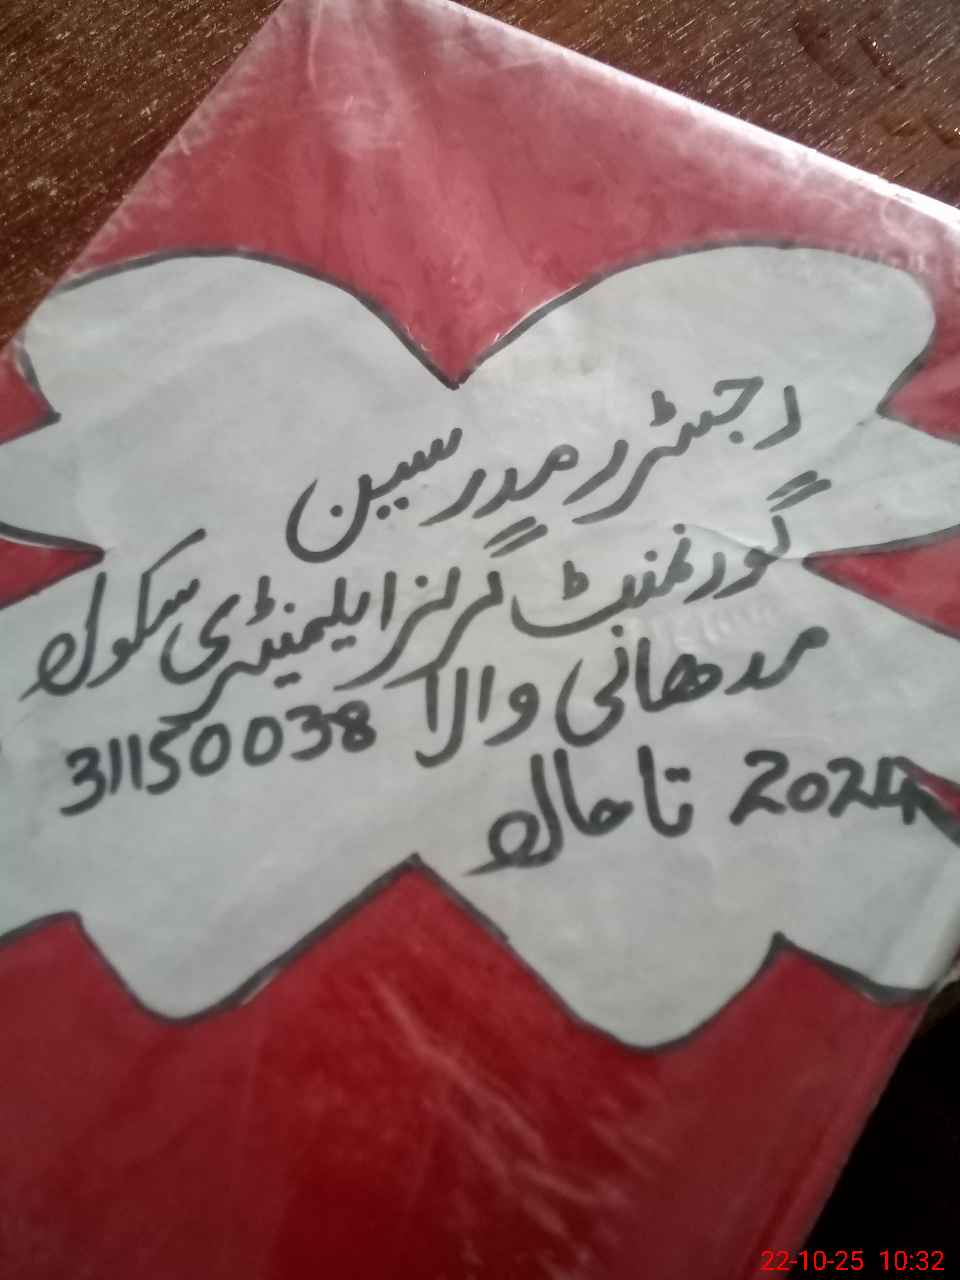 رجسٹر مدرسین
گورنمنٹ گرلز ایلیمنٹری سکول
مدھانی والا 31150038
2024 تا حال
22-10-25 10:32